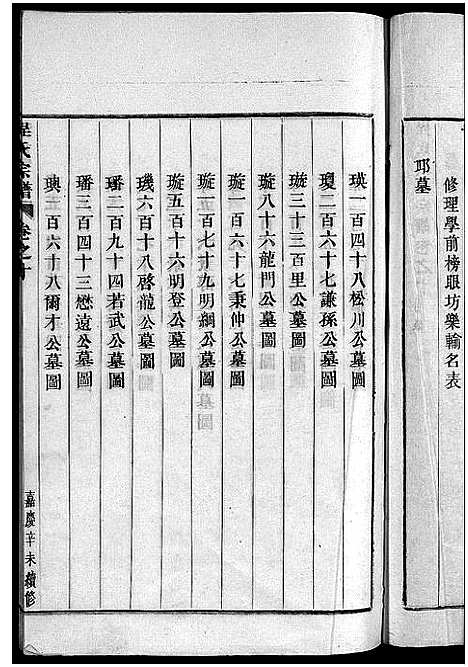 修理學前榜眼坊樂輸名表
邛墓
瑛一百四十八松川公墓圖
瓊二百六十七謙孫公墓圖
璇三十三百里公墓圖
璇八十六龍門公墓圖
璇一百六十七秉仲公墓圖
璇一百七十九明綱公墓圖
璇五百十六明登公墓圖
璣六百十八啓龍公墓圖
璠二百九十四若武公墓圖
璠三百四十三懋遠公墓圖
璵二百六十八爾才公墓圖
氏宗譜 卷之十
嘉慶辛未續修